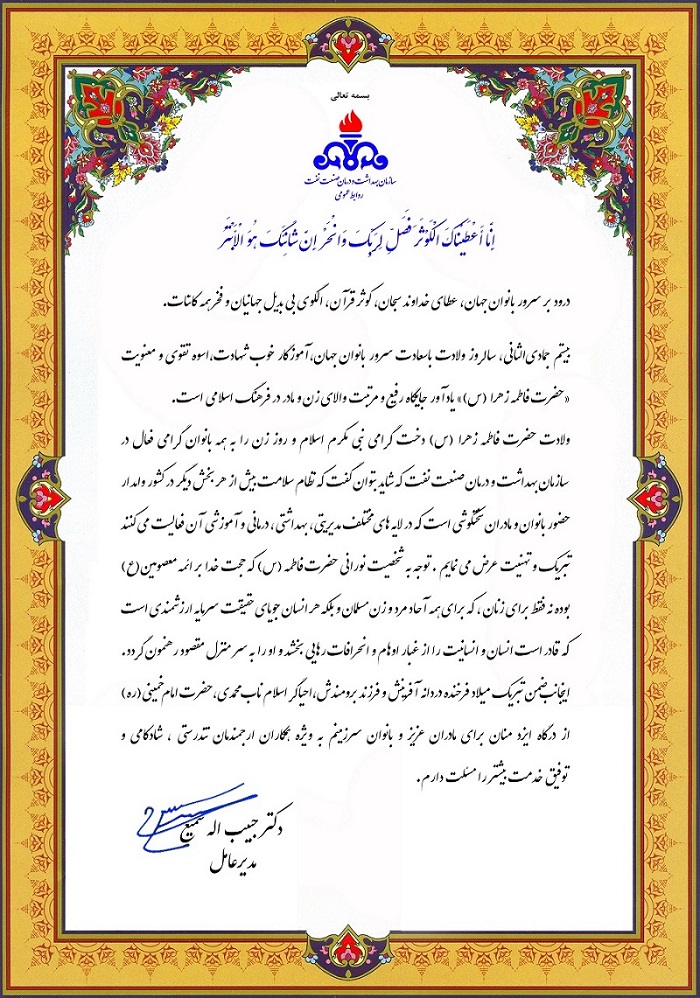 بسمه تعالی
سازمان بهداشت و درمان صنعت نفت
روابط عمومی
اِنّا أَعْطَیْنٰکَ الْکَوْثَرَ فَصَلِّ لِرَبِّکَ وَانْحَرْ اِنَّ شَانِئَکَ هُوَ الْاَبْتَرُ
درود بر سرور بانوان جهان، عطای خداوند سبحان، کوثر قرآن، الگوی بی بدیل جهانیان و فخر همه کائنات.
بیستم جمادی الثانی، سالروز ولادت باسعادت سرور بانوان جهان، آموزگار خوب شهادت، اسوه تقوی و معنویت
«حضرت فاطمه زهرا (س)» یادآور جایگاه رفیع و مرتبت والای زن و مادر در فرهنگ اسلامی است.
ولادت حضرت فاطمه زهرا (س) دخت گرامی نبی مکرم اسلام و روز زن را به همه بانوان گرامی فعال در
سازمان بهداشت و درمان صنعت نفت که شاید بتوان گفت که نظام سلامت بیش از هر بخش دیگر در کشور وامدار
حضور بانوان و مادران سختکوشی است که در لایه های مختلف مدیریتی، بهداشتی، درمانی و آموزشی آن فعالیت می کنند
تبریک و تهنیت عرض می نمایم. توجه به شخصیت نورانی حضرت فاطمه (س) که حجت خدا بر ائمه معصومین (ع)
بوده نه فقط برای زنان، که برای همه آحاد مرد و زن مسلمان و بلکه هر انسان جویای حقیقت سرمایه ارزشمندی است
که قادر است انسان و انسانیت را از غبار اوهام و انحرافات رهایی بخشد و او را به سر منزل مقصود رهنمون گردد.
اینجانب ضمن تبریک میلاد فرخنده دردانه آفرینش و فرزند برومندش، احیاگر اسلام ناب محمدی، حضرت امام خمینی (ره)
از درگاه ایزد منان برای مادران عزیز و بانوان سرزمینم به ویژه همکاران ارجمندمان تندرستی، شادکامی و
توفیق خدمت بیشتر را مسئلت دارم.
دکتر حبیب اله سمیع
مدیرعامل